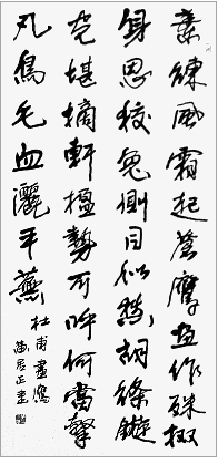 素練風霜起蒼鷹畫作殊㧐
身思狡兔側目似愁胡絛鏇
光堪摘軒楹勢可呼何當擊
凡鳥毛血灑平蕪
杜甫畫鷹
正書